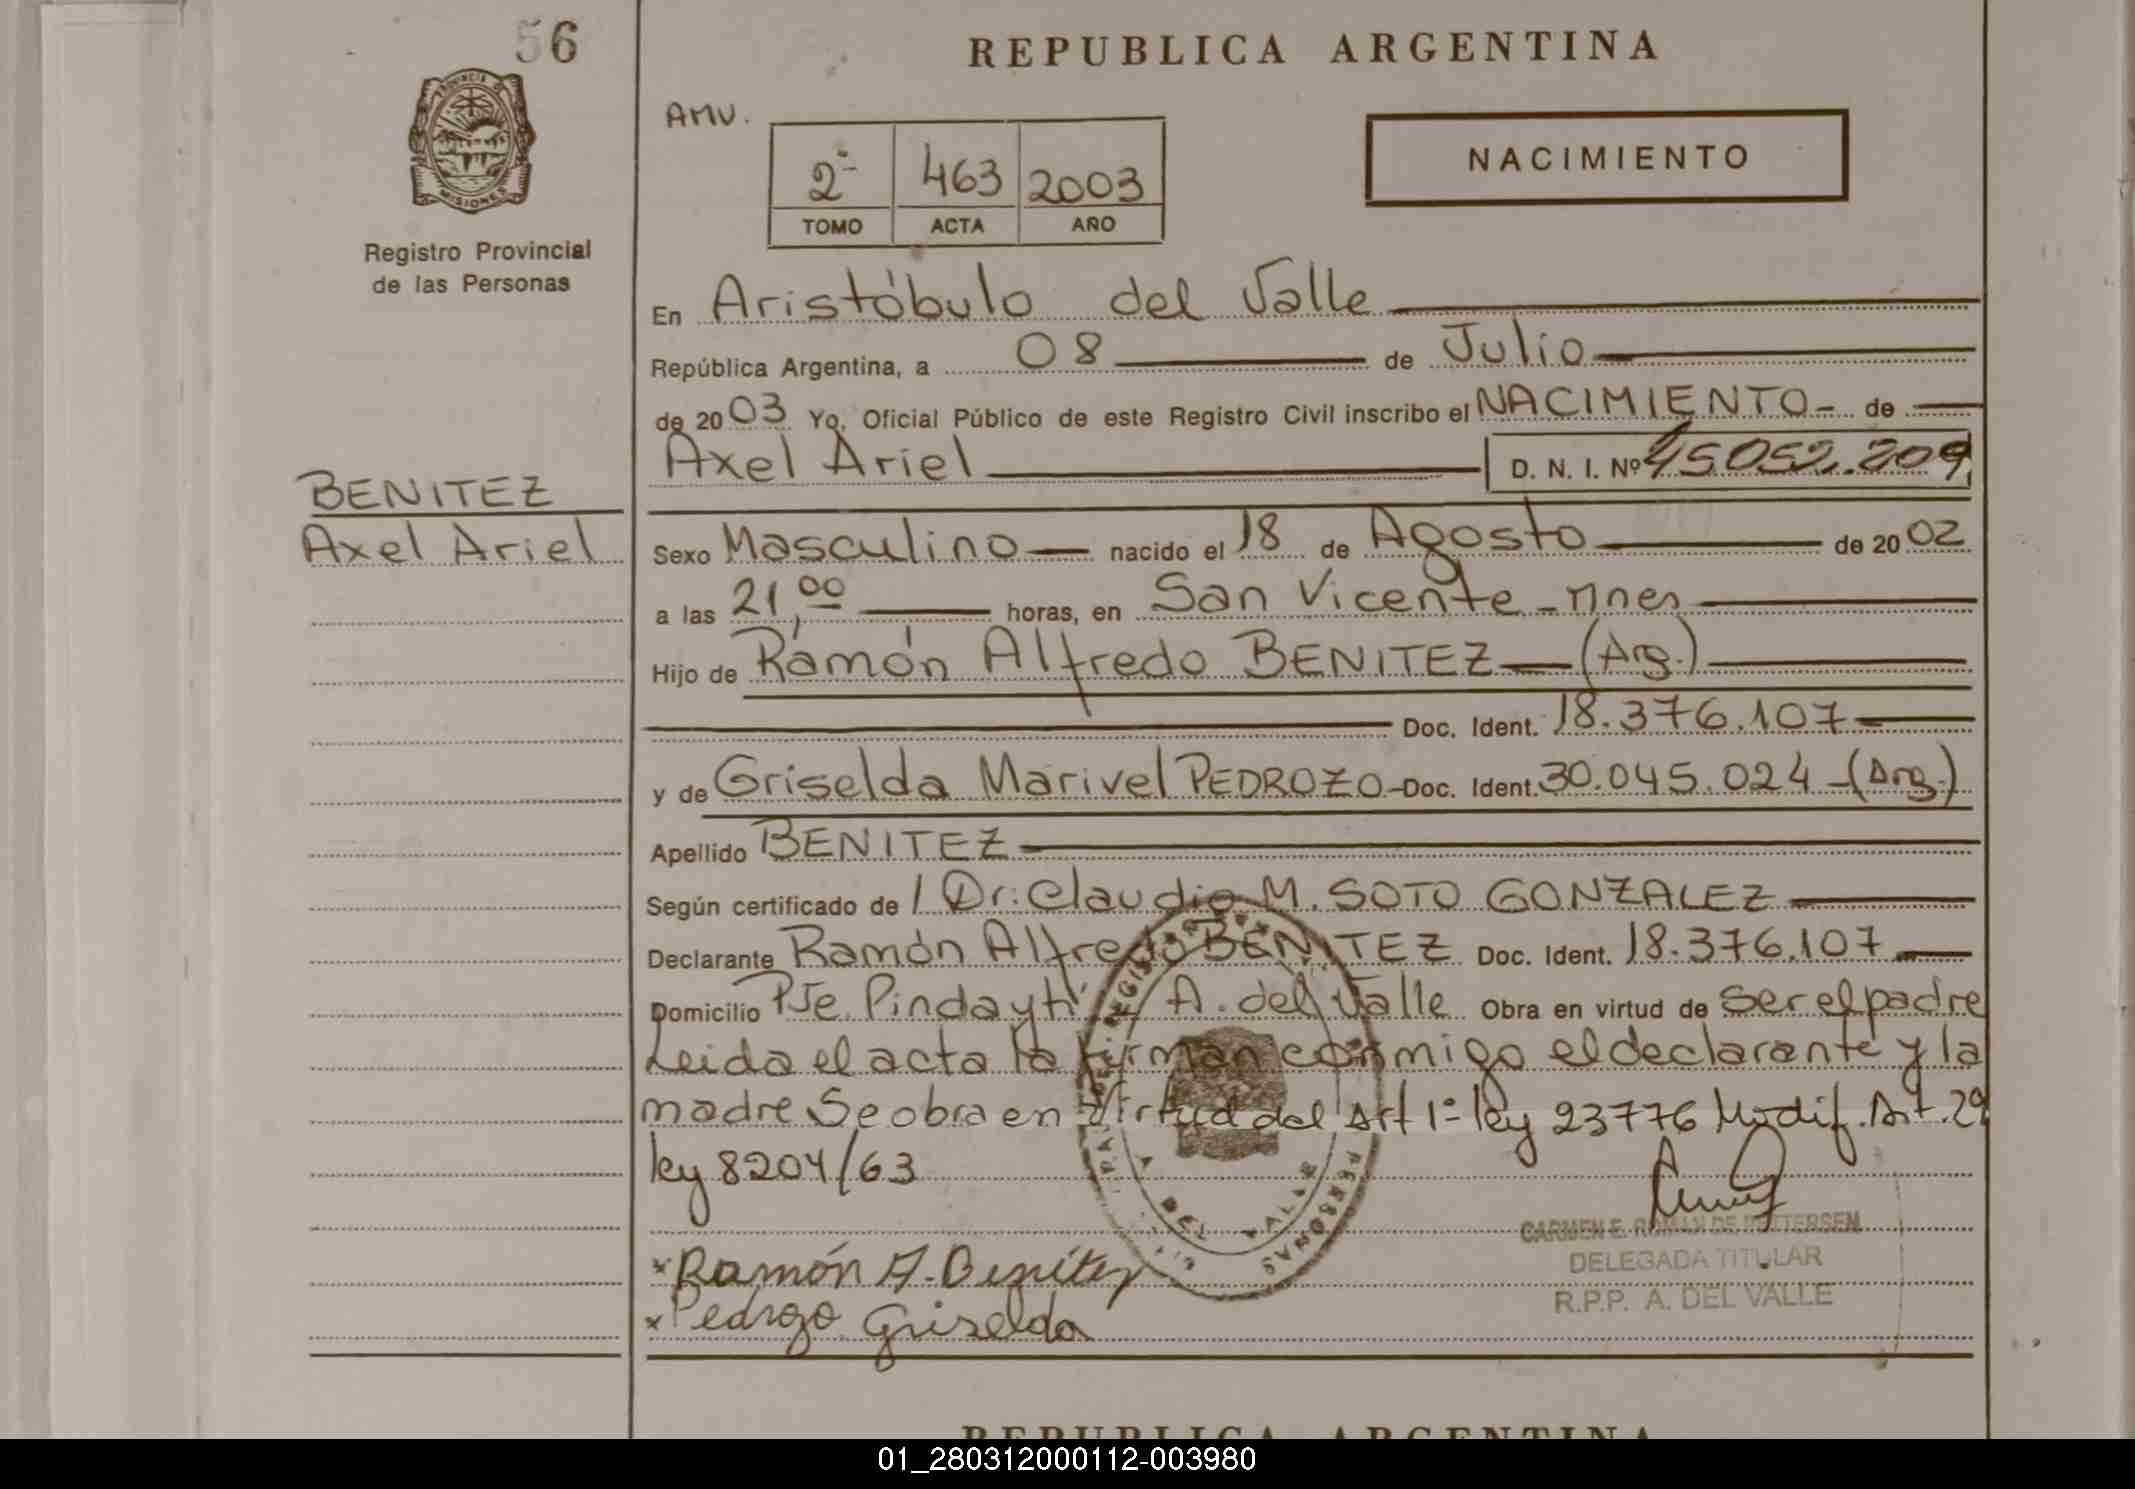 56
REPUBLICA ARGENTINA
AMV.
2º 463 2003
TOMO ACTA AÑO
NACIMIENTO
PROVINCIA DE MISIONES
Registro Provincial
de las Personas
En Aristóbulo del Valle
República Argentina, a 08 de Julio
de 2003 Yo, Oficial Público de este Registro Civil inscribo el NACIMIENTO- de
Axel Ariel D. N. I. Nº 45052.209
BENITEZ
Axel Ariel
Sexo Masculino nacido el 18 de Agosto de 2002
a las 21,00 horas, en San Vicente - Mnes
Hijo de Ramón Alfredo BENITEZ (Arg.)
Doc. Ident. 18.376.107
y de Griselda Marivel PEDROZO - Doc. Ident. 30.045.024 - (Arg.)
Apellido BENITEZ
Según certificado de / Dr. Claudio M. SOTO GONZALEZ
Declarante Ramón Alfredo BENITEZ Doc. Ident. 18.376.107
Domicilio Pje. Pindaytí A. del Valle Obra en virtud de ser el padre
Leida el acta la firman conmigo el declarante y la
madre Se obra en virtud del Art 1º ley 23776 Modif. Art. 29
ley 8204/63
CARMEN E. ROMAN DE PETTERSEN
DELEGADA TITULAR
R.P.P. A. DEL VALLE
x Ramón A. Benítez
x Pedrozo Griselda
REPUBLICA ARGENTINA
01_280312000112-003980